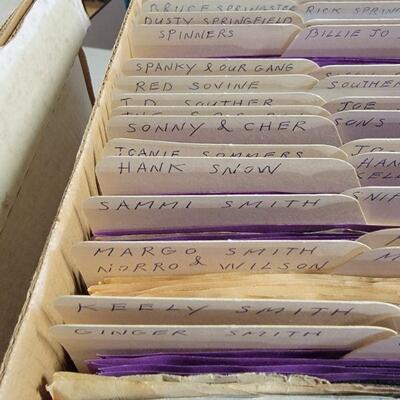 BRUCE SPRINGSTEEN
RICK SPRIN
DUSTY SPRINGFIELD
SPINNERS
BILLIE JO
SPANKY & OUR GANG
RED SOVINE
SOUTHER
J.D. SOUTHER
JOE
SONNY & CHER
SONS
JOANIE SOMMERS
HANK SNOW
HAN
SAMMI SMITH
MARGO SMITH
NORRO & WILSON
KEELY SMITH
GINGER SMITH